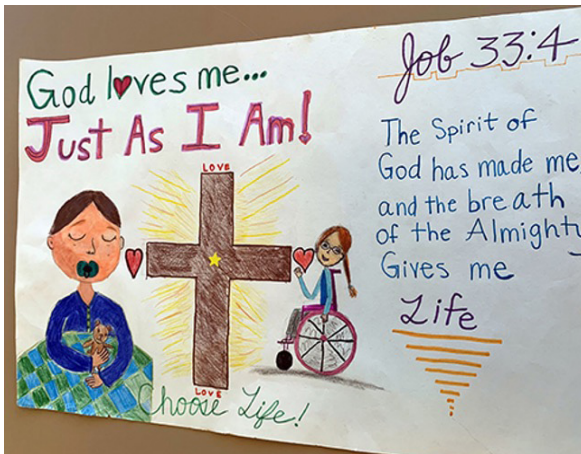 God loves me...
Just As I Am!
LOVE
LOVE
Choose Life!
Job 33:4
The Spirit of
God has made me,
and the breath
of the Almighty
Gives me
Life